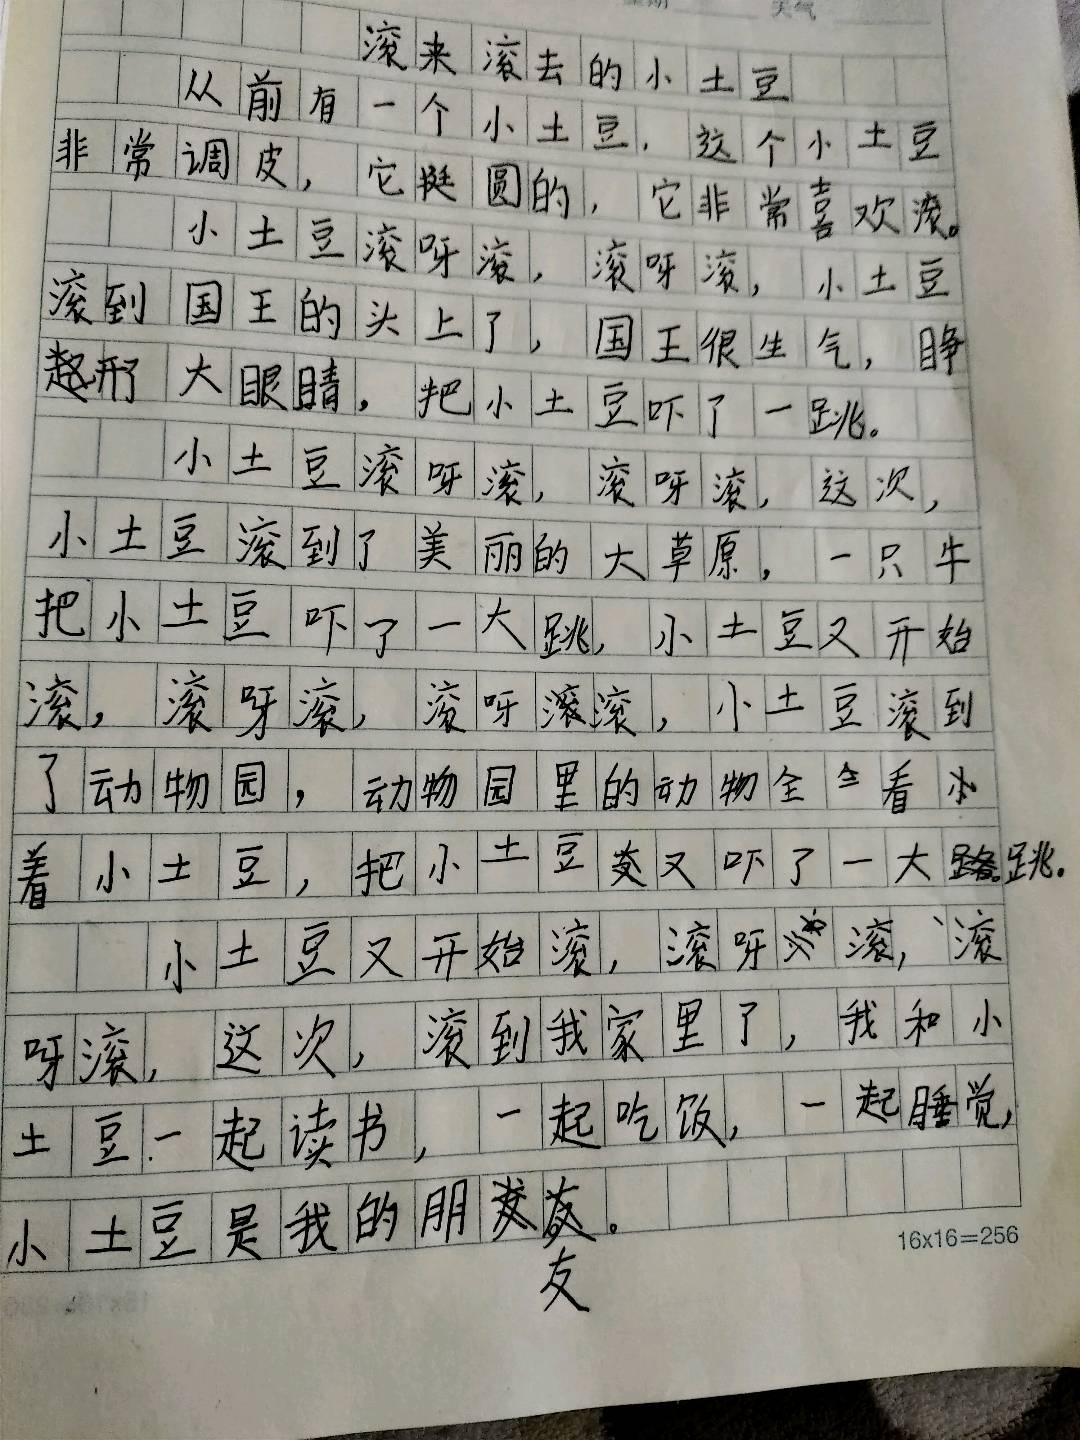 天气
滚来滚去的小土豆
从前有一个小土豆，这个小土豆
非常调皮，它挺圆的，它非常喜欢滚。
小土豆滚呀滚，滚呀滚，小土豆
滚到国王的头上了，国王很生气，睁
大眼睛，把小土豆吓了一跳。
小土豆滚呀滚，滚呀滚，这次，
小土豆滚到了美丽的大草原，一只牛
把小土豆吓了一大跳，小土豆又开始
滚，滚呀滚，滚呀滚，小土豆滚到
了动物园，动物园里的动物全全看
着小土豆，把小土豆又吓了一大跳。
小土豆又开始滚，滚呀滚，滚
呀滚，这次，滚到我家里了，我和小
土豆一起读书，一起吃饭，一起睡觉，
小土豆是我的朋友。
16x16=256